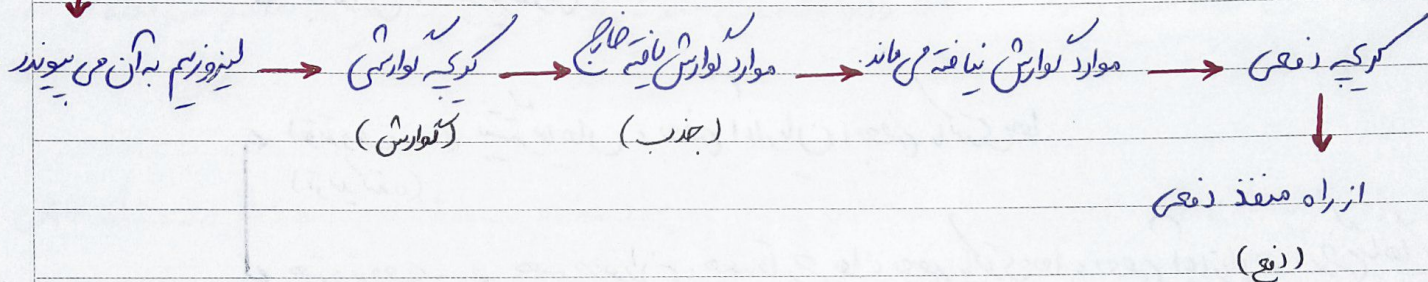 لیزوزیم به آن می پیوندد → کریچه گوارشی → موارد گوارش یافته خارج → موارد گوارش نیافته می ماند → کریچه دفعی
(گوارش) (جذب)
از راه منفذ دفعی
(دفع)